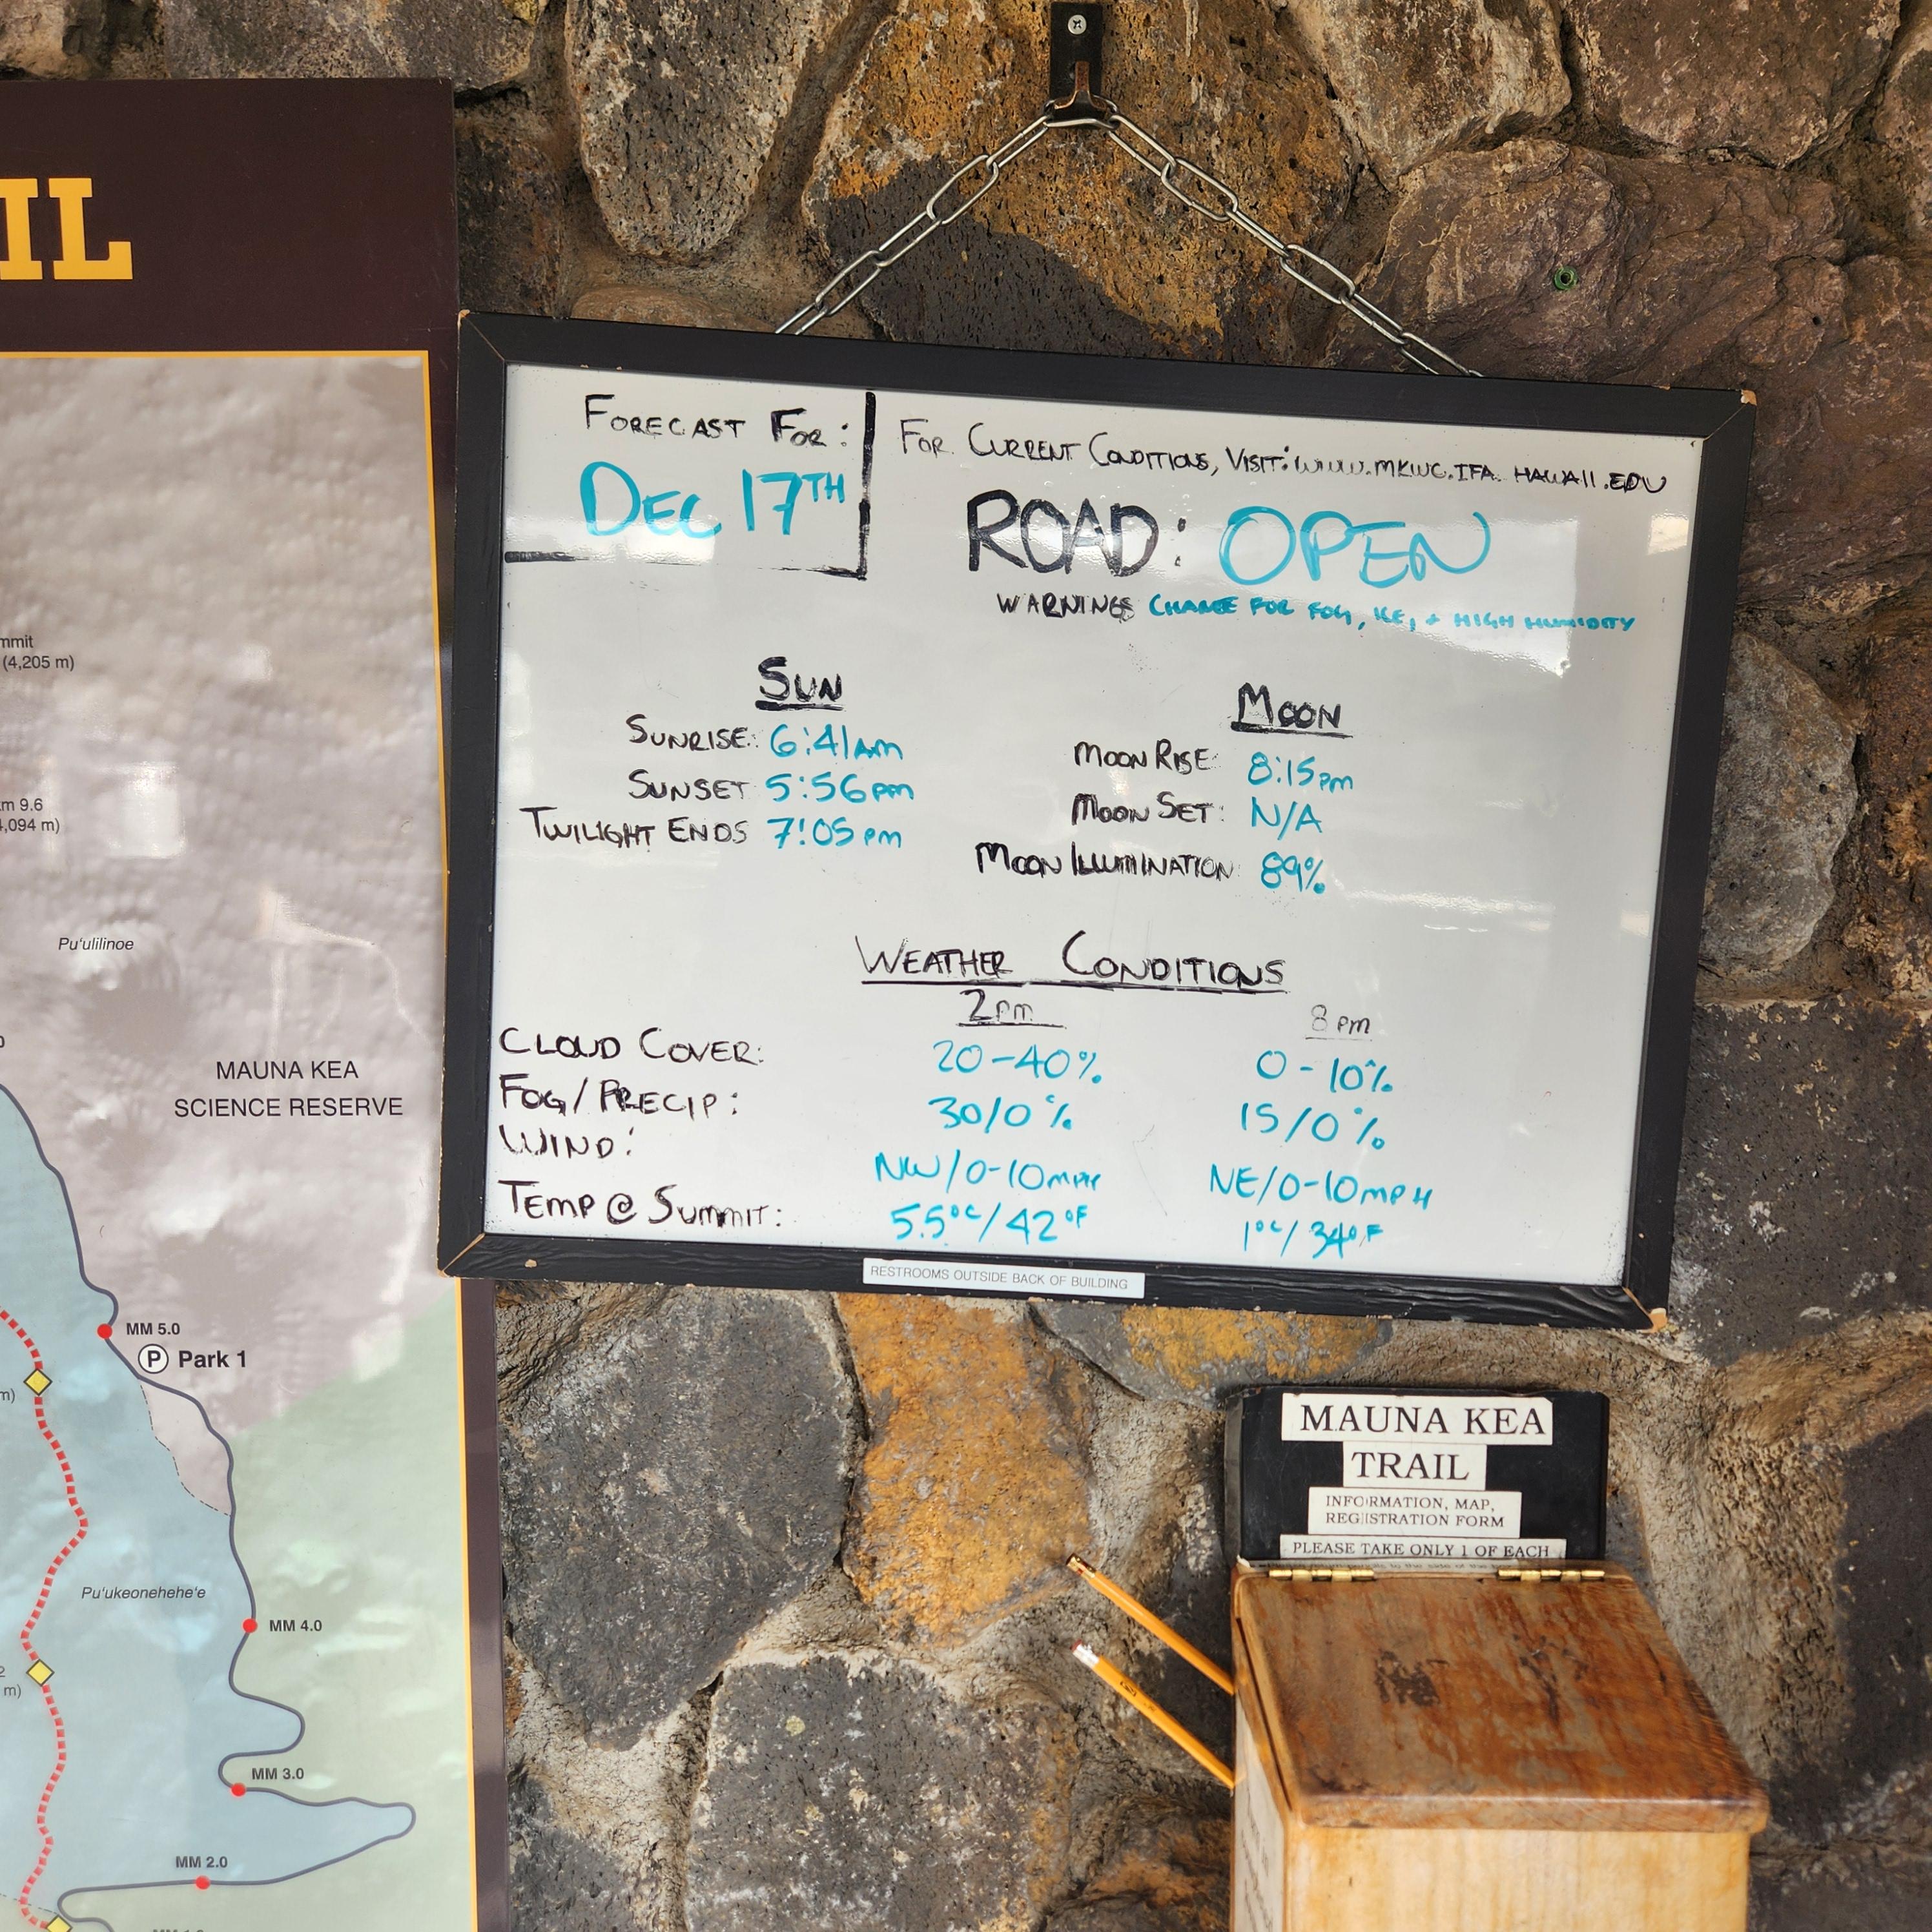 IL
mmit
(4,205 m)
m 9.6
4,094 m)
Pu'ulilinoe
MAUNA KEA
SCIENCE RESERVE
MM 5.0
P Park 1
m)
Pu'ukeonehehe'e
MM 4.0
2
m)
MM 3.0
MM 2.0
FORECAST FOR:
DEC 17TH
FOR CURRENT CONDITIONS, VISIT: WWW.MKWC.IFA.HAWAII.EDU
ROAD: OPEN
WARNINGS CHANCE FOR FOG, ICE, + HIGH HUMIDITY
SUN
SUNRISE: 6:41AM
SUNSET 5:56pm
TWILIGHT ENDS 7:05pm
MOON
MOON RISE: 8:15pm
MOON SET: N/A
MOON ILLUMINATION 89%
WEATHER CONDITIONS
2pm 8pm
CLOUD COVER: 20-40% 0-10%
FOG/PRECIP: 30/0% 15/0%
WIND: NW/0-10MPH NE/0-10MPH
TEMP @ SUMMIT: 5.5°C/42°F 1°C/34°F
RESTROOMS OUTSIDE BACK OF BUILDING
MAUNA KEA
TRAIL
INFORMATION, MAP,
REGISTRATION FORM
PLEASE TAKE ONLY 1 OF EACH